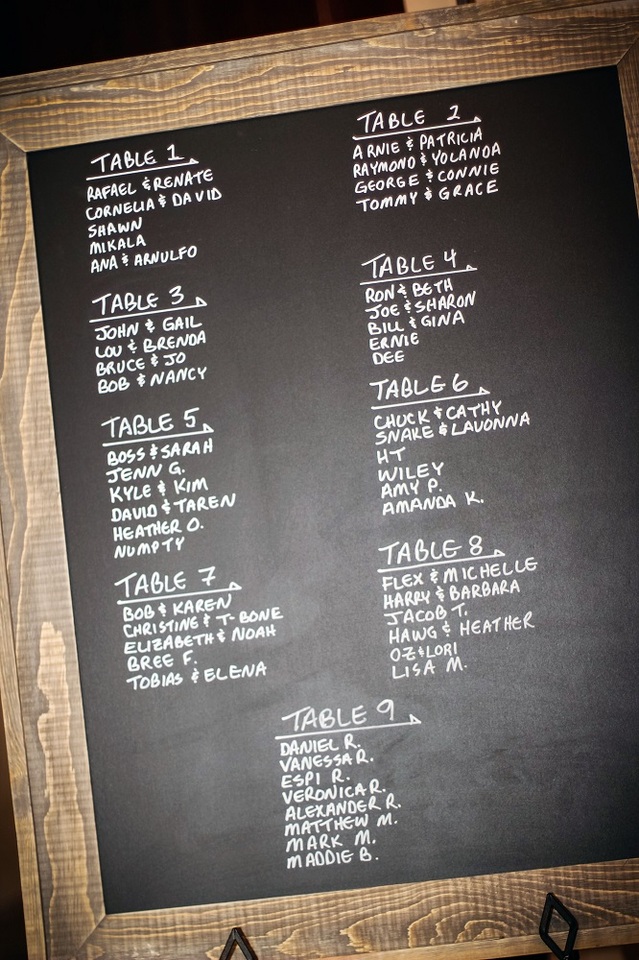 TABLE 1
RAFAEL & RENATE
CORNELIA & DAVID
SHAWN
MIKALA
ANA & ARNULFO
TABLE 2
ARNIE & PATRICIA
RAYMOND & YOLANDA
GEORGE & CONNIE
TOMMY & GRACE
TABLE 3
JOHN & GAIL
LOU & BRENDA
BRUCE & JO
BOB & NANCY
TABLE 4
RON & BETH
JOE & SHARON
BILL & GINA
ERNIE
DEE
TABLE 5
BOSS & SARAH
JENN G.
KYLE & KIM
DAVID & TAREN
HEATHER O.
NUMPTY
TABLE 6
CHUCK & CATHY
SNAKE & LAVONNA
HT
WILEY
AMY P.
AMANDA K.
TABLE 7
BOB & KAREN
CHRISTINE & T-BONE
ELIZABETH & NOAH
BREE F.
TOBIAS & ELENA
TABLE 8
FLEX & MICHELLE
HARRY & BARBARA
JACOB T.
HAWG & HEATHER
OZ & LORI
LISA M.
TABLE 9
DANIEL R.
VANESSA R.
ESPI R.
VERONICA R.
ALEXANDER R.
MATTHEW M.
MARK M.
MADDIE B.